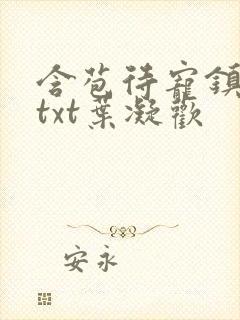 含苞待寵鎮
txt葉凝歡
安永